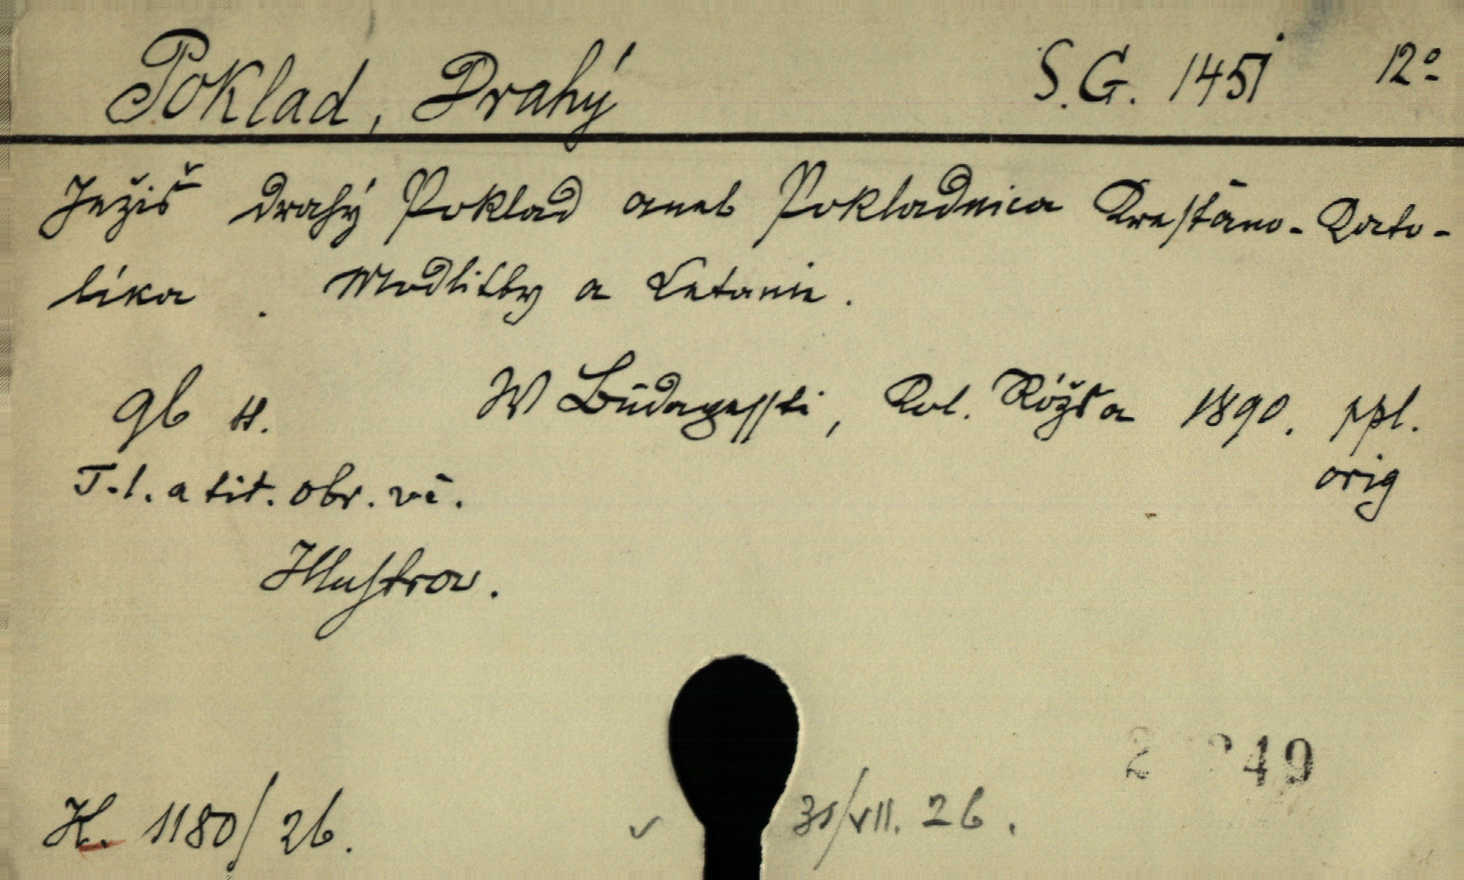 Poklad, Drahý S.G. 1451 12º
Ježiš Drahý Poklad aneb Pokladnica Kresťano-Kato-
líka. Modlitby a Letanie.
96 s. W Budapessti, Kol. Rózsa 1890. ppl.
T.l. a tit. obr. vč. orig
Illustrov.
49
H. 1180/26. 31/VII. 26.